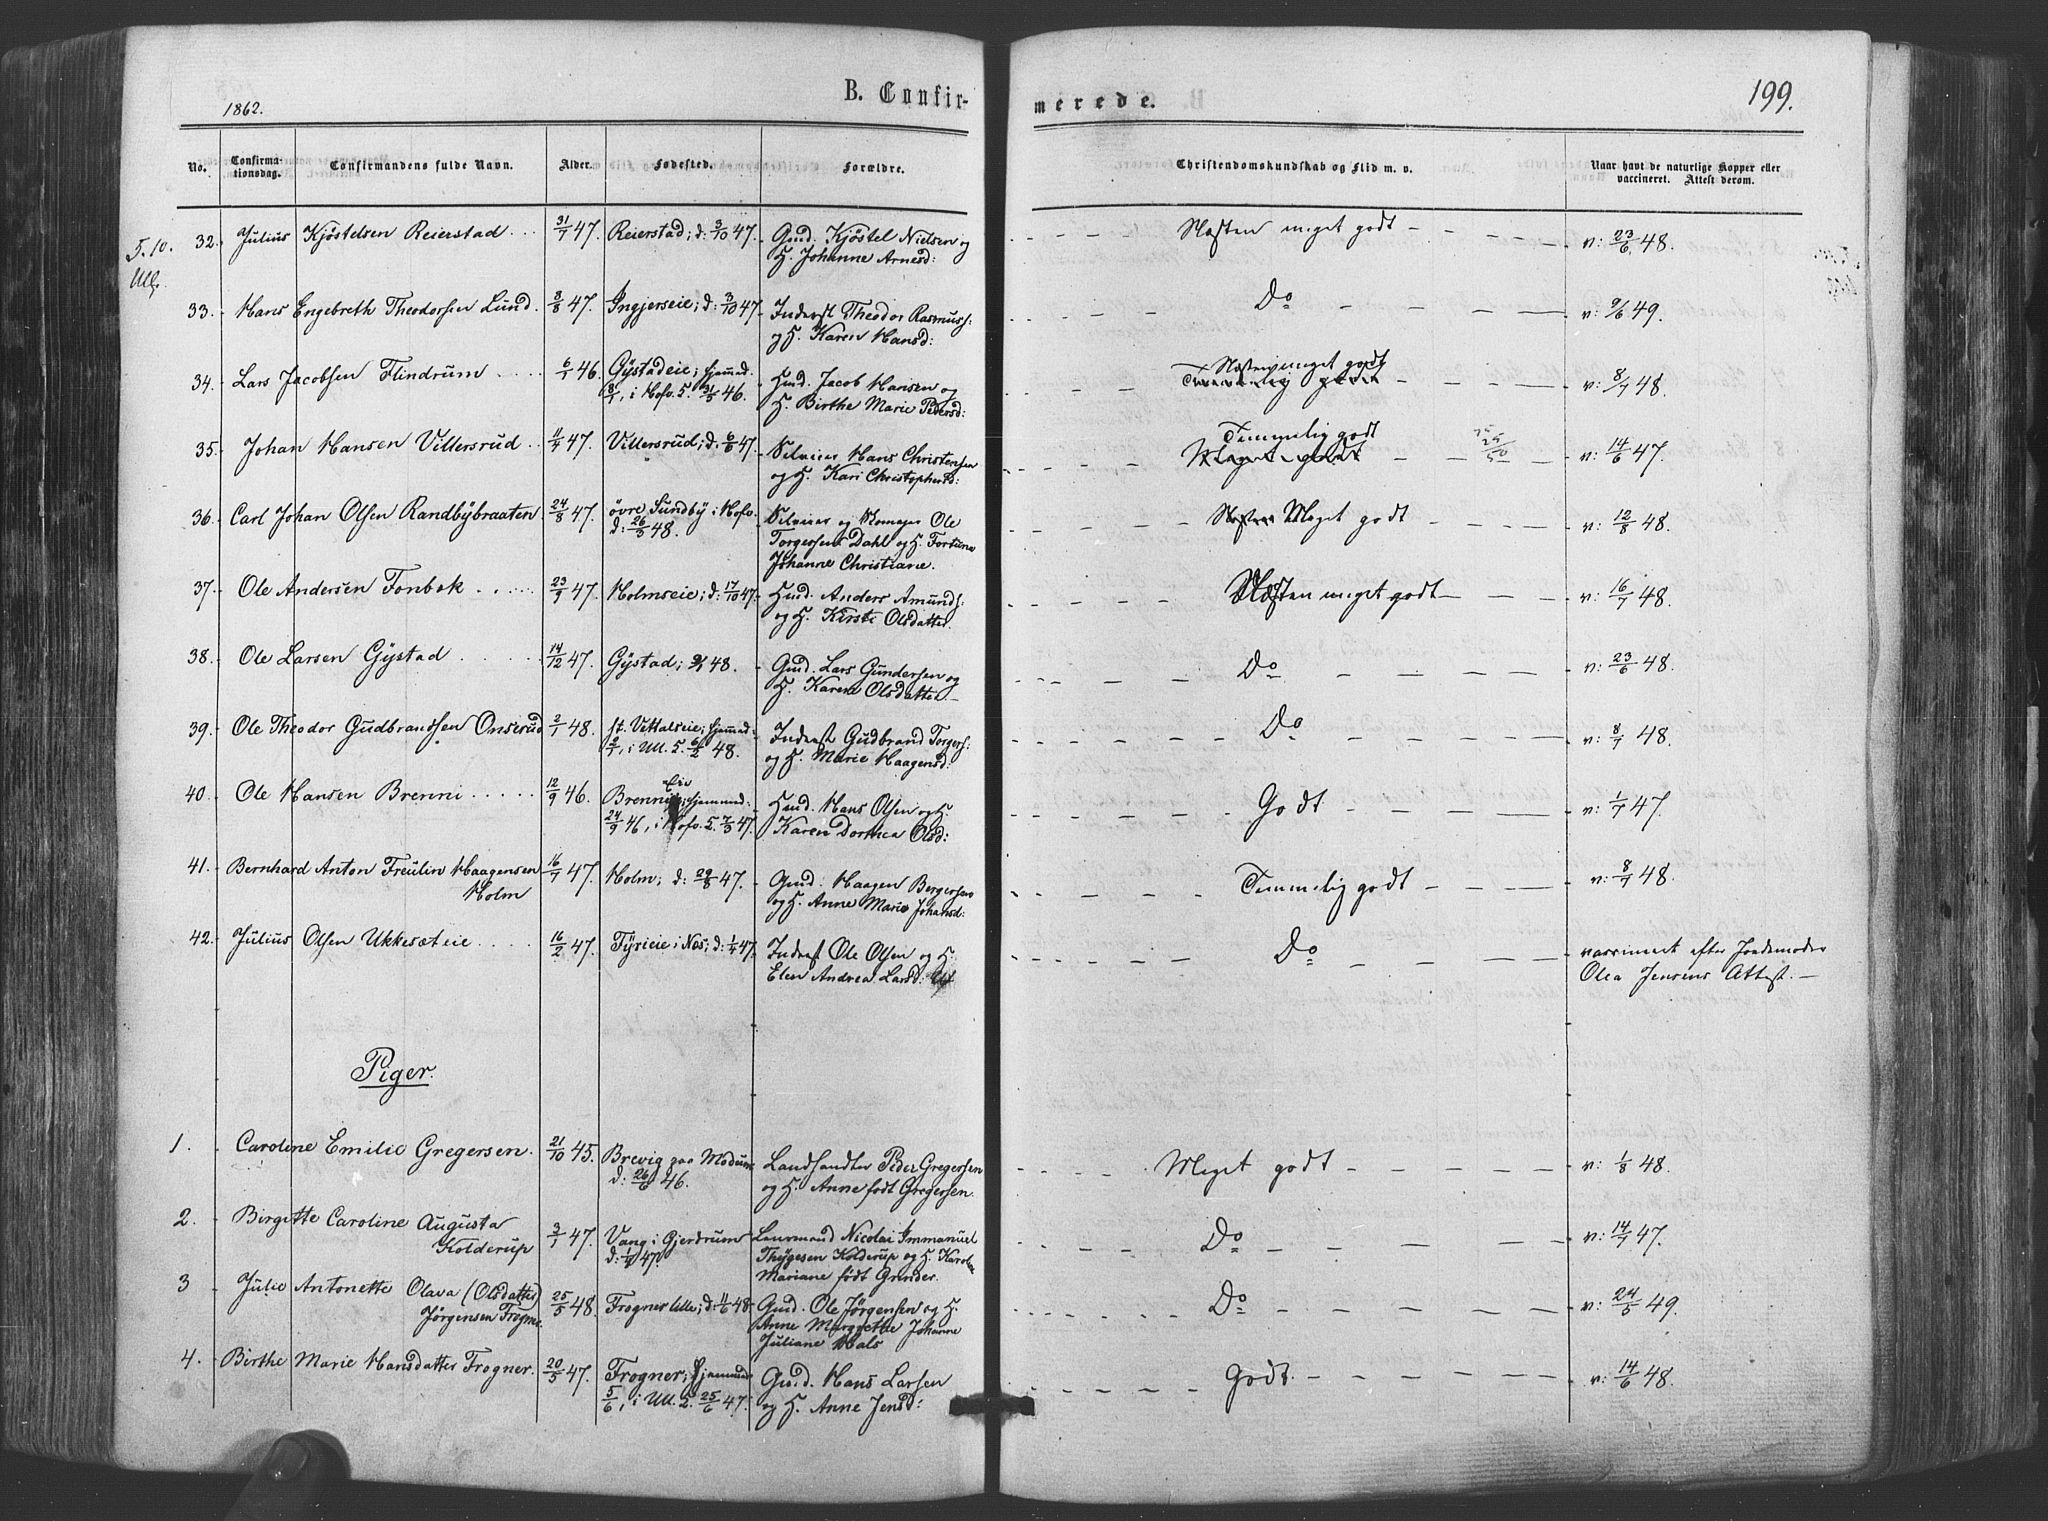 1862.
B. Confir-
merede.
199.
No.
Confirma-
tionsdag.
Confirmandens fulde Navn.
Alder.
Fødested.
Forældre.
Christendomskundskab og Flid m. v.
Naar havt de naturlige Kopper eller
vaccineret. Attest derom.
5.10.
Ull.
32. Julius Kjøstelsen Reierstad 31/7 47. Reierstad; d: 3/10 47. Gmd. Kjøstel Nielsen og
H. Johanne Arnesd:
Næsten meget godt v: 23/6 48.
33. Hans Engebreth Theodorsen Lund 8/8 47. Ingjerseie; d: 3/10 47. Inderst Theodor Rasmuss:
og H. Karen Hansd:
Do v: 9/6 49.
34. Lars Jacobsen Flindrum 6/1 46. Gystadeie; hjemmed.
8/1, i Hofv. 5. 31/5 46.
Hmd. Jacob Hansen og
H. Birthe Marie Pedersd:
Næsten meget godt
Temmelig godt v: 8/7 48.
35. Johan Hansen Villersrud 11/4 47. Villersrud; d: 6/6 47. Selveier Hans Christensen
og H. Kari Christophersd:
Temmelig godt
Meget godt 25/50 v: 14/6 47.
36. Carl Johan Olsen Randbybraaten 24/8 47. øvre Sundby i Hofv.
d: 26/3 48.
Selveier og Ole
Torgersens Dahl og H. Fortune
Johanne Christiane.
Næsten Meget godt v: 12/8 48.
37. Ole Andersen Fonbæk 23/9 47. Holmseie; d: 17/10 47. Hmd. Anders Amunds:
og H. Kirsti Olsdatter.
Næsten meget godt v: 16/7 48.
38. Ole Larsen Gystad 14/12 47. Gystad; 9/1 48. Gmd. Lars Gundersen og
H. Karen Olsdatter
Do v: 23/6 48.
39. Ole Theodor Gudbrandsen Onserud 2/1 48. st. Vettalseie; hjemmed.
2/1, i Ull. 5. 6/2 48.
Inderst Gudbrand Torgers:
og H. Marie Haagensd:
Do v: 8/7 48.
40. Ole Hansen Brenni 12/9 46. Brenni Eie; hjemmed.
24/9 46, i Hofv. 5. 7/3 47.
Hmd. Hans Olsen og H.
Karen Dorthea Olsd:
Godt v: 1/7 47.
41. Bernhard Anton Freulin Haagensen
Holm 16/7 47. Holm; d: 29/8 47. Gmd. Haagen Bergersen
og H. Anne Marie Johansd:
Temmelig godt v: 8/7 48.
42. Julius Olsen Ukkesæteie 16/2 47. Tyrieie i Næs; d: 1/4 47. Inderst Ole Olsen og H.
Elen Andrea Larsd:
Do vaccineret efter Jordemoder
Olea Jensens Attest.
Piger.
1. Caroline Emilie Gregersen. 21/10 45. Brevig paa Modum
d: 26/6 46.
Landhandler Peder Gregersen
og H. Anne født Gregersen.
Meget godt v: 1/8 48.
2. Birgitte Caroline Augusta
Kolderup 3/1 47. Vang i Gjerdrum
d: 1/4 47.
Lensmand Nicolai Immanuel
Thygesen Kolderup og H. Karoline
Mariane født Grinder.
Do v: 14/7 47.
3 Julie Antonette Olava (Olsdatter)
Jørgensen Frogner 25/5 48. Frogner lille; d: 11/6 48. Gmd. Ole Jørgensen og H.
Anne Margrethe Johanne
Juliane Hals
Do v: 24/5 49.
4. Birthe Marie Hansdatter Frogner. 20/5 47. Frogner; hjemmed.
5/6, i Ull. 5. 25/6 47.
Gmd. Hans Larsen
og H. Anne Jensd:
Godt. v: 14/6 48.